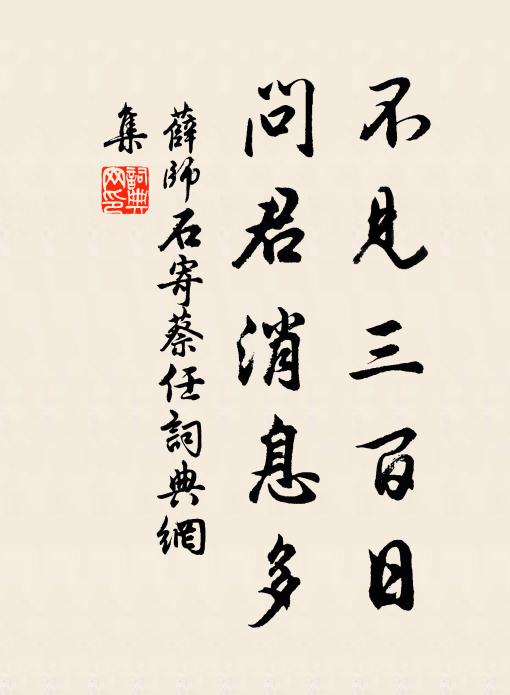 不見三百日
問君消息多
薛師石寄蔡任詞典網
集
詞典網印